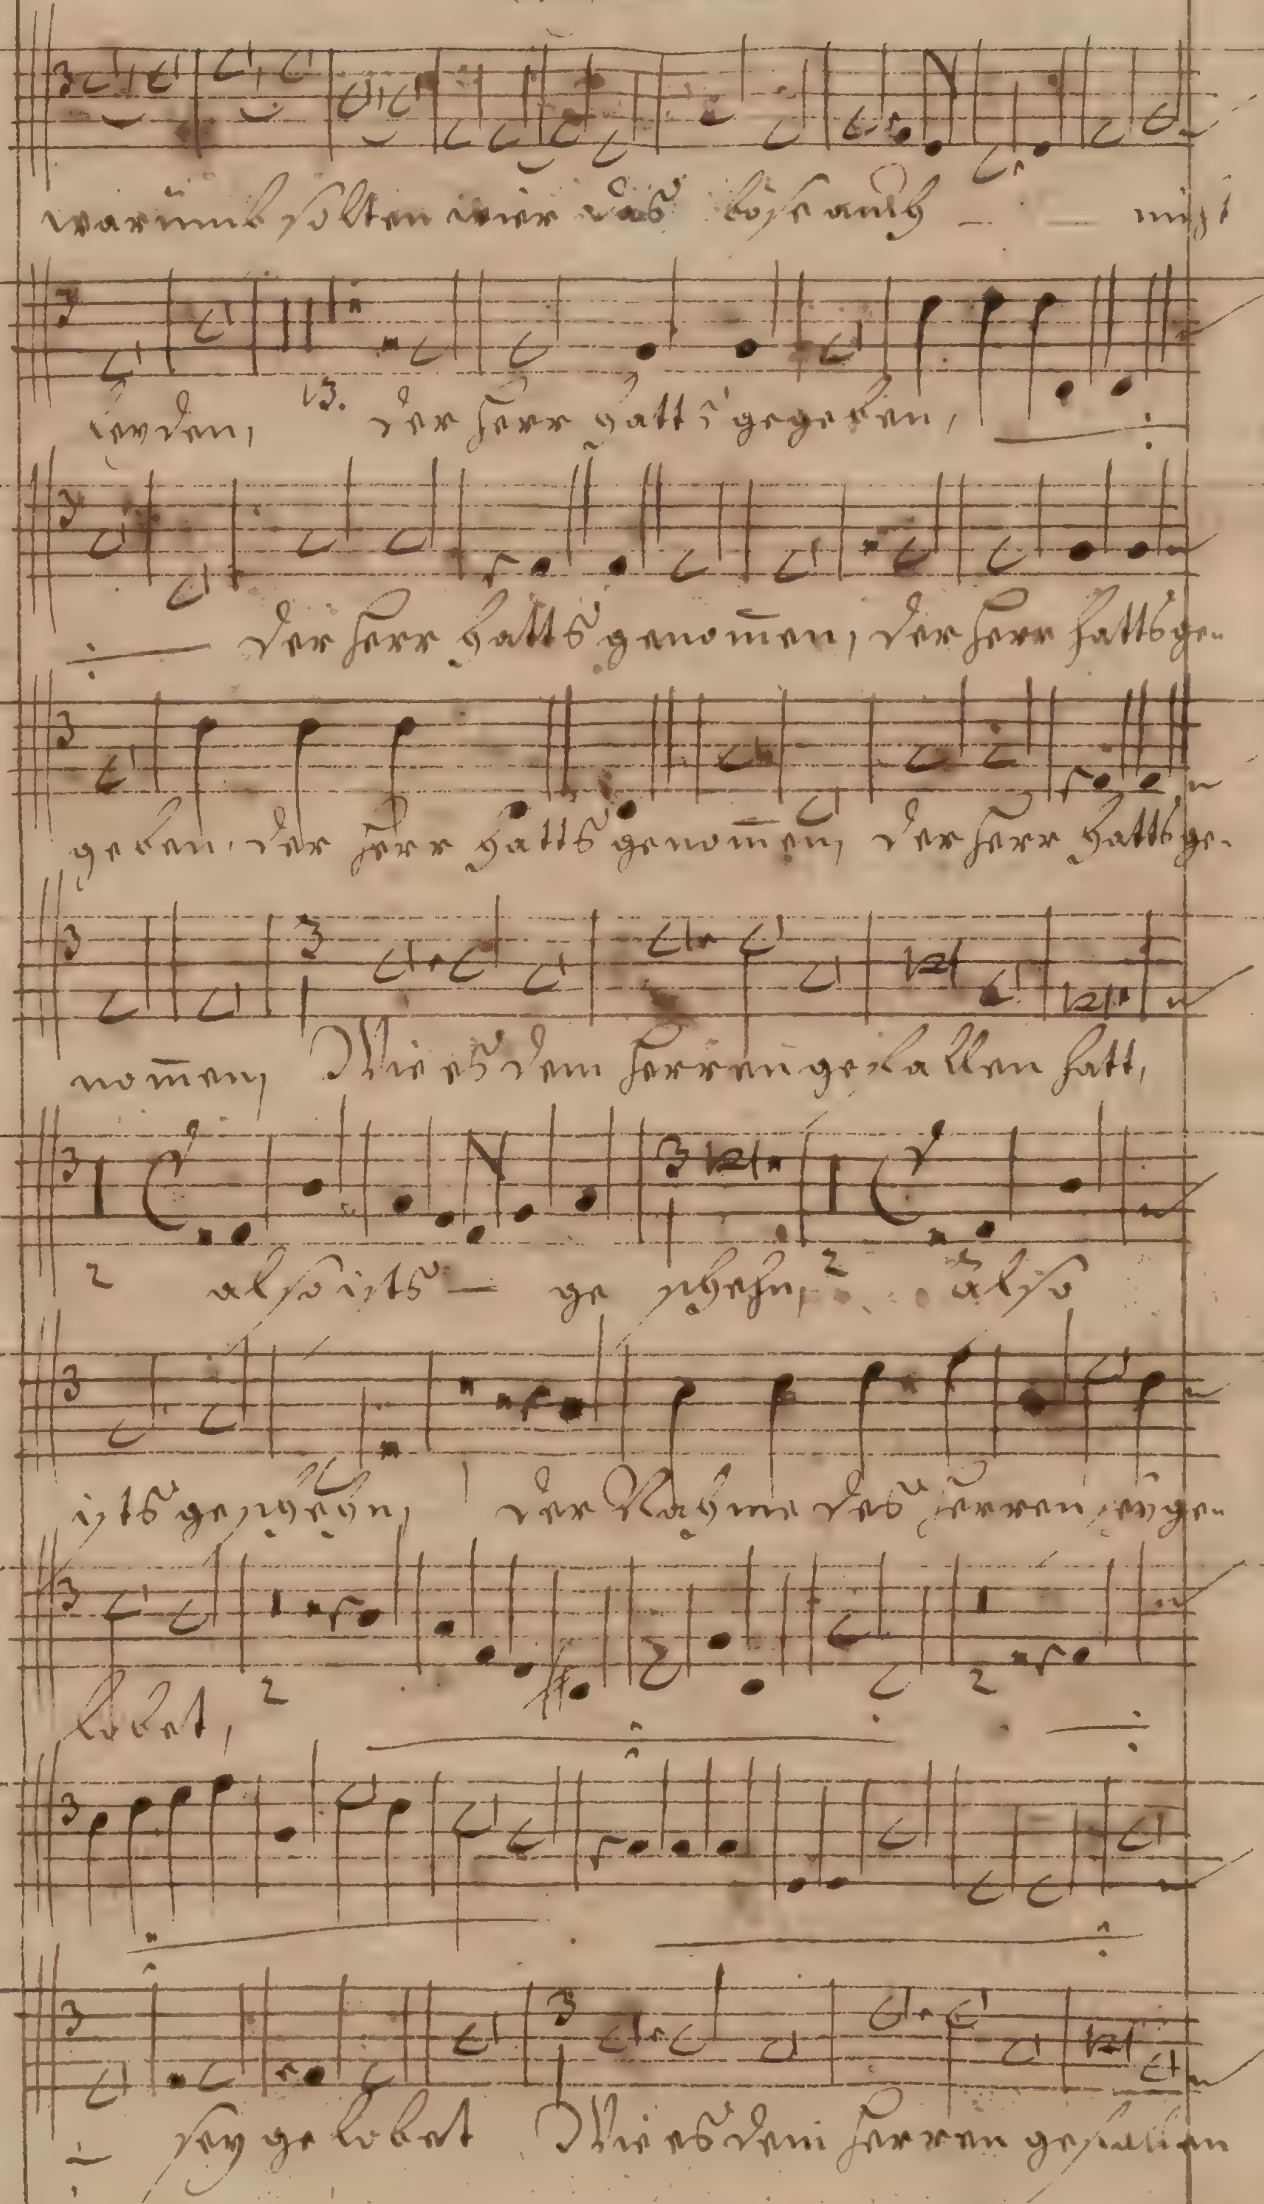 warumb solten wier das böse auch nicht
leyden, 13. der Herr hatts gegeben,
der Herr hatts genom̅en, der Herr hatts ge-
geben. der Herr hatts genom̅en, der Herr hatts ge-
nom̅en, Wie es dem Herren gefallen hatt,
2 also ists ge schehn, 2 also
ists geschehn, der Nahme des Herren sey ge-
lobet, 2 2
sey gelobet Wie es dem Herren gefallen